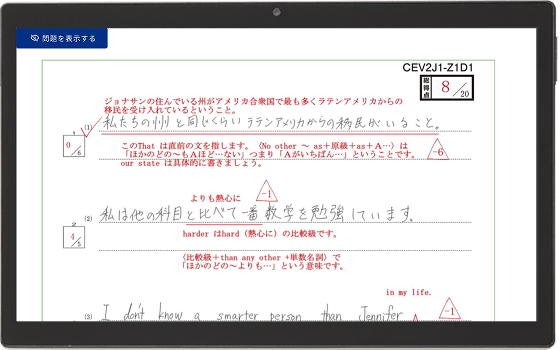 問題を表示する
CEV2J1-Z1D1
総得点 8/20
ジョナサンの住んでいる州がアメリカ合衆国で最も多くラテンアメリカからの
移民を受け入れているということ。
(1) 私たちの州と同じくらいラテンアメリカからの移民がいること。
0/6
このThat は直前の文を指します。〈No other ～ as＋原級＋as＋A…〉は
「ほかのどの～もAほど…ない」つまり「Aがいちばん…」ということです。
our state は具体的に書きましょう。
-6
よりも熱心に
-1
(2) 私は他の科目と比べて一番数学を勉強しています。
2
4/5
harder はhard（熱心に）の比較級です。
〈比較級＋than any other +単数名詞〉で
「ほかのどの～よりも…」という意味です。
in my life.
(3) I don't know a smarter person than Jennifer
-1